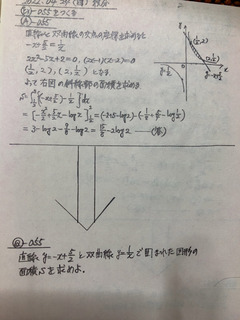 (A)-055
直線と双曲線の交点の座標を求めると
-x+5/2=1/x
2x²-5x+2=0, (2x-1)(x-2)=0
(1/2, 2), (2, 1/2) となる
よって右図の斜線部の面積を求める
∫{(-x+5/2)-1/x}dx
=[-x²/2+5/2x-log x]=(-2+5-log2)-(-1/8+5/4-log1/2)
=3-log2-9/8-log2=15/8-2log2 ――(答)
y
x
(1/2, 2)
(2, 1/2)
@-055
直線 y=-x+5/2 と双曲線 y=1/x で囲まれた図形の
面積Sを求めよ。